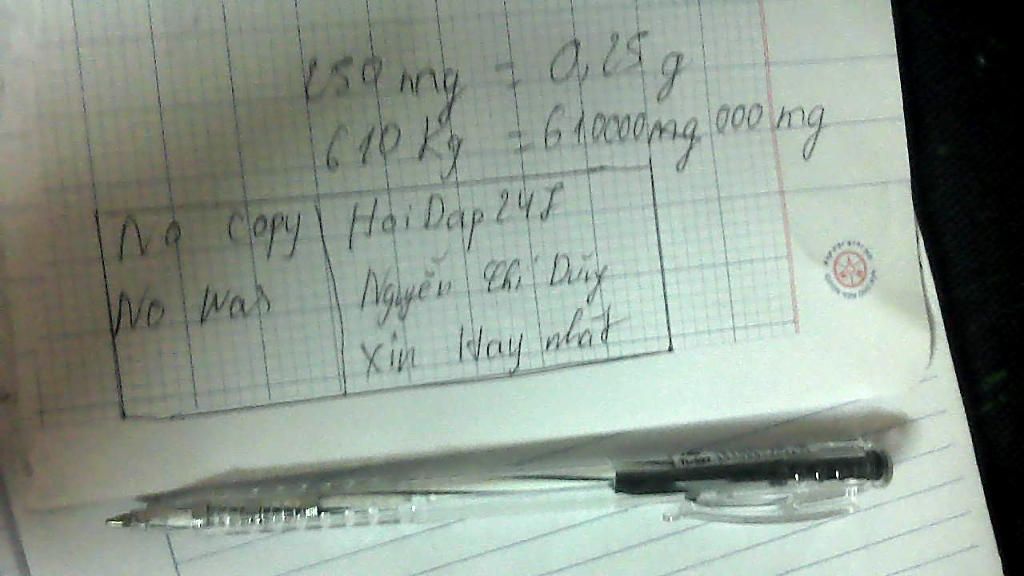 250 mg = 0,25 g
610 Kg = 610000mg 000 mg
No Copy
No Was
HoiDap247
Nguyễn Chí Duy
Xin Hay nhất